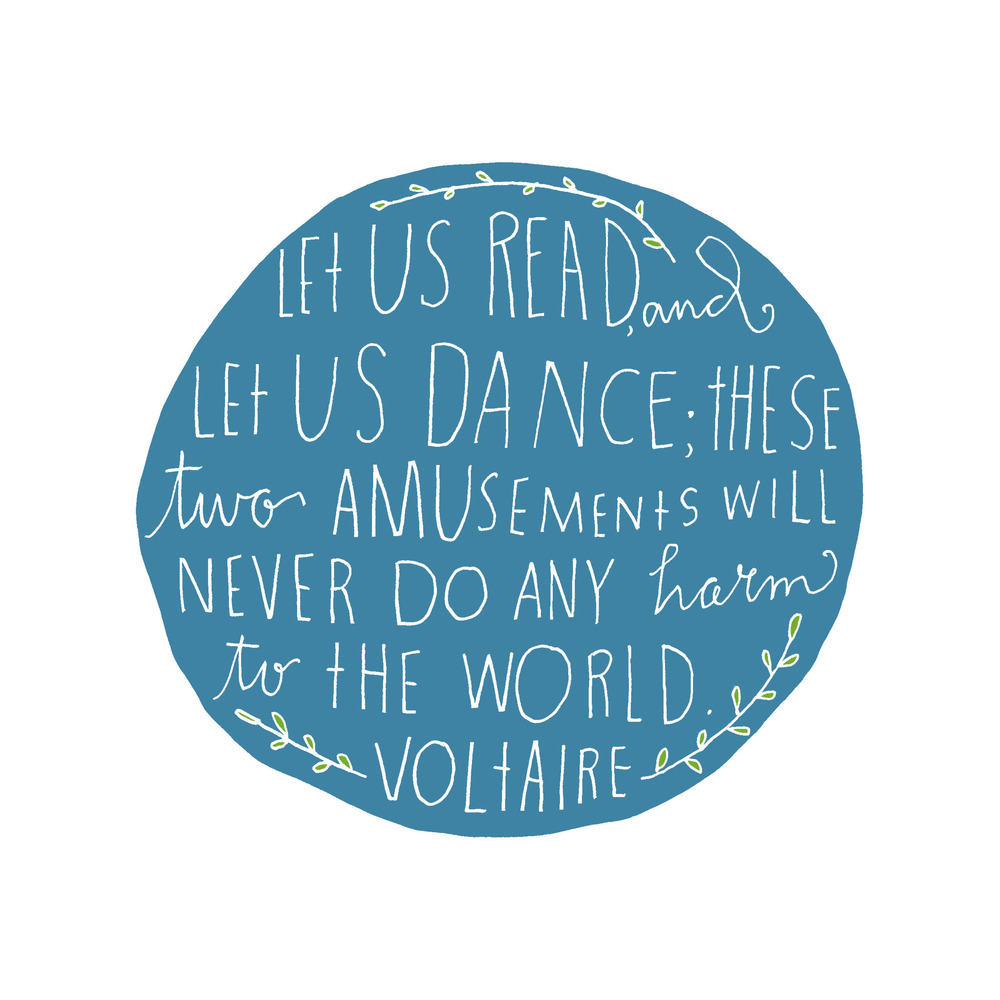 LEt US READ, and
LEt US DANCE; tHESE
two AMUSEMENtS WILL
NEVER DO ANY harm
to tHE WORLD.
VOLtAIRE